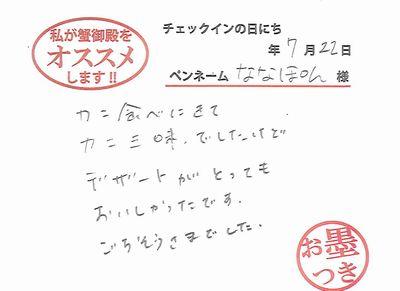 私が蟹御殿を
オススメ
します!!
チェックインの日にち
年7月22日
ペンネーム ななほん 様
カニ食べにきて
カニ三昧、でしたけど
デザートがとっても
おいしかったです。
ごちそうさまでした。
お墨
つき